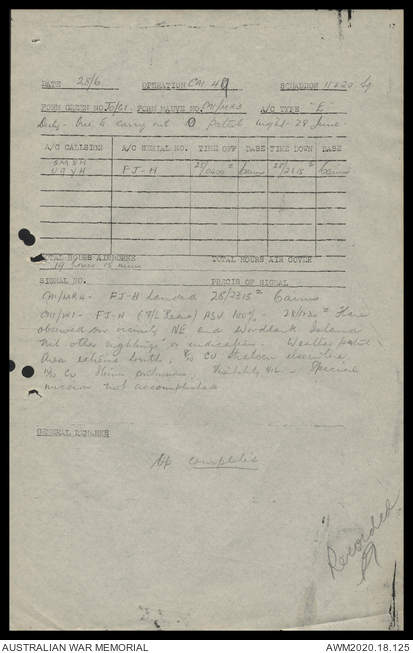 DATE 28/6 OPERATION CAI 49 SQUADRON 11 & 20 Sq.
FORM GREEN NO. FORM MAUVE NO. CAI/MR3 A/C TYPE "E"
Duty - to carry out patrol night 28 June
A/C CALLSIGN A/C SERIAL NO. TIME OFF BASE TIME DOWN BASE
FJ-H 28/0400Z Cairns 28/2315Z Cairns
TOTAL HOURS AIRBORNE TOTAL HOURS AIR COVER
19 hours 15 mins
SIGNAL NO. PRECIS OF SIGNAL
CAI/MR4 - FJ-H landed 28/2315Z Cairns
FJ-H ASV 100% - Flare
observed on vicinity NE end Woodlark Island
Nil other sightings or indications. Weather patrol
Area extreme South, CU Stratocu elsewhere
10/10 CU Storm continuous. Visibility Nil. - Special
mission not accomplished
GENERAL REMARKS
Op completed
Recorded
AUSTRALIAN WAR MEMORIAL AWM2020.18.125